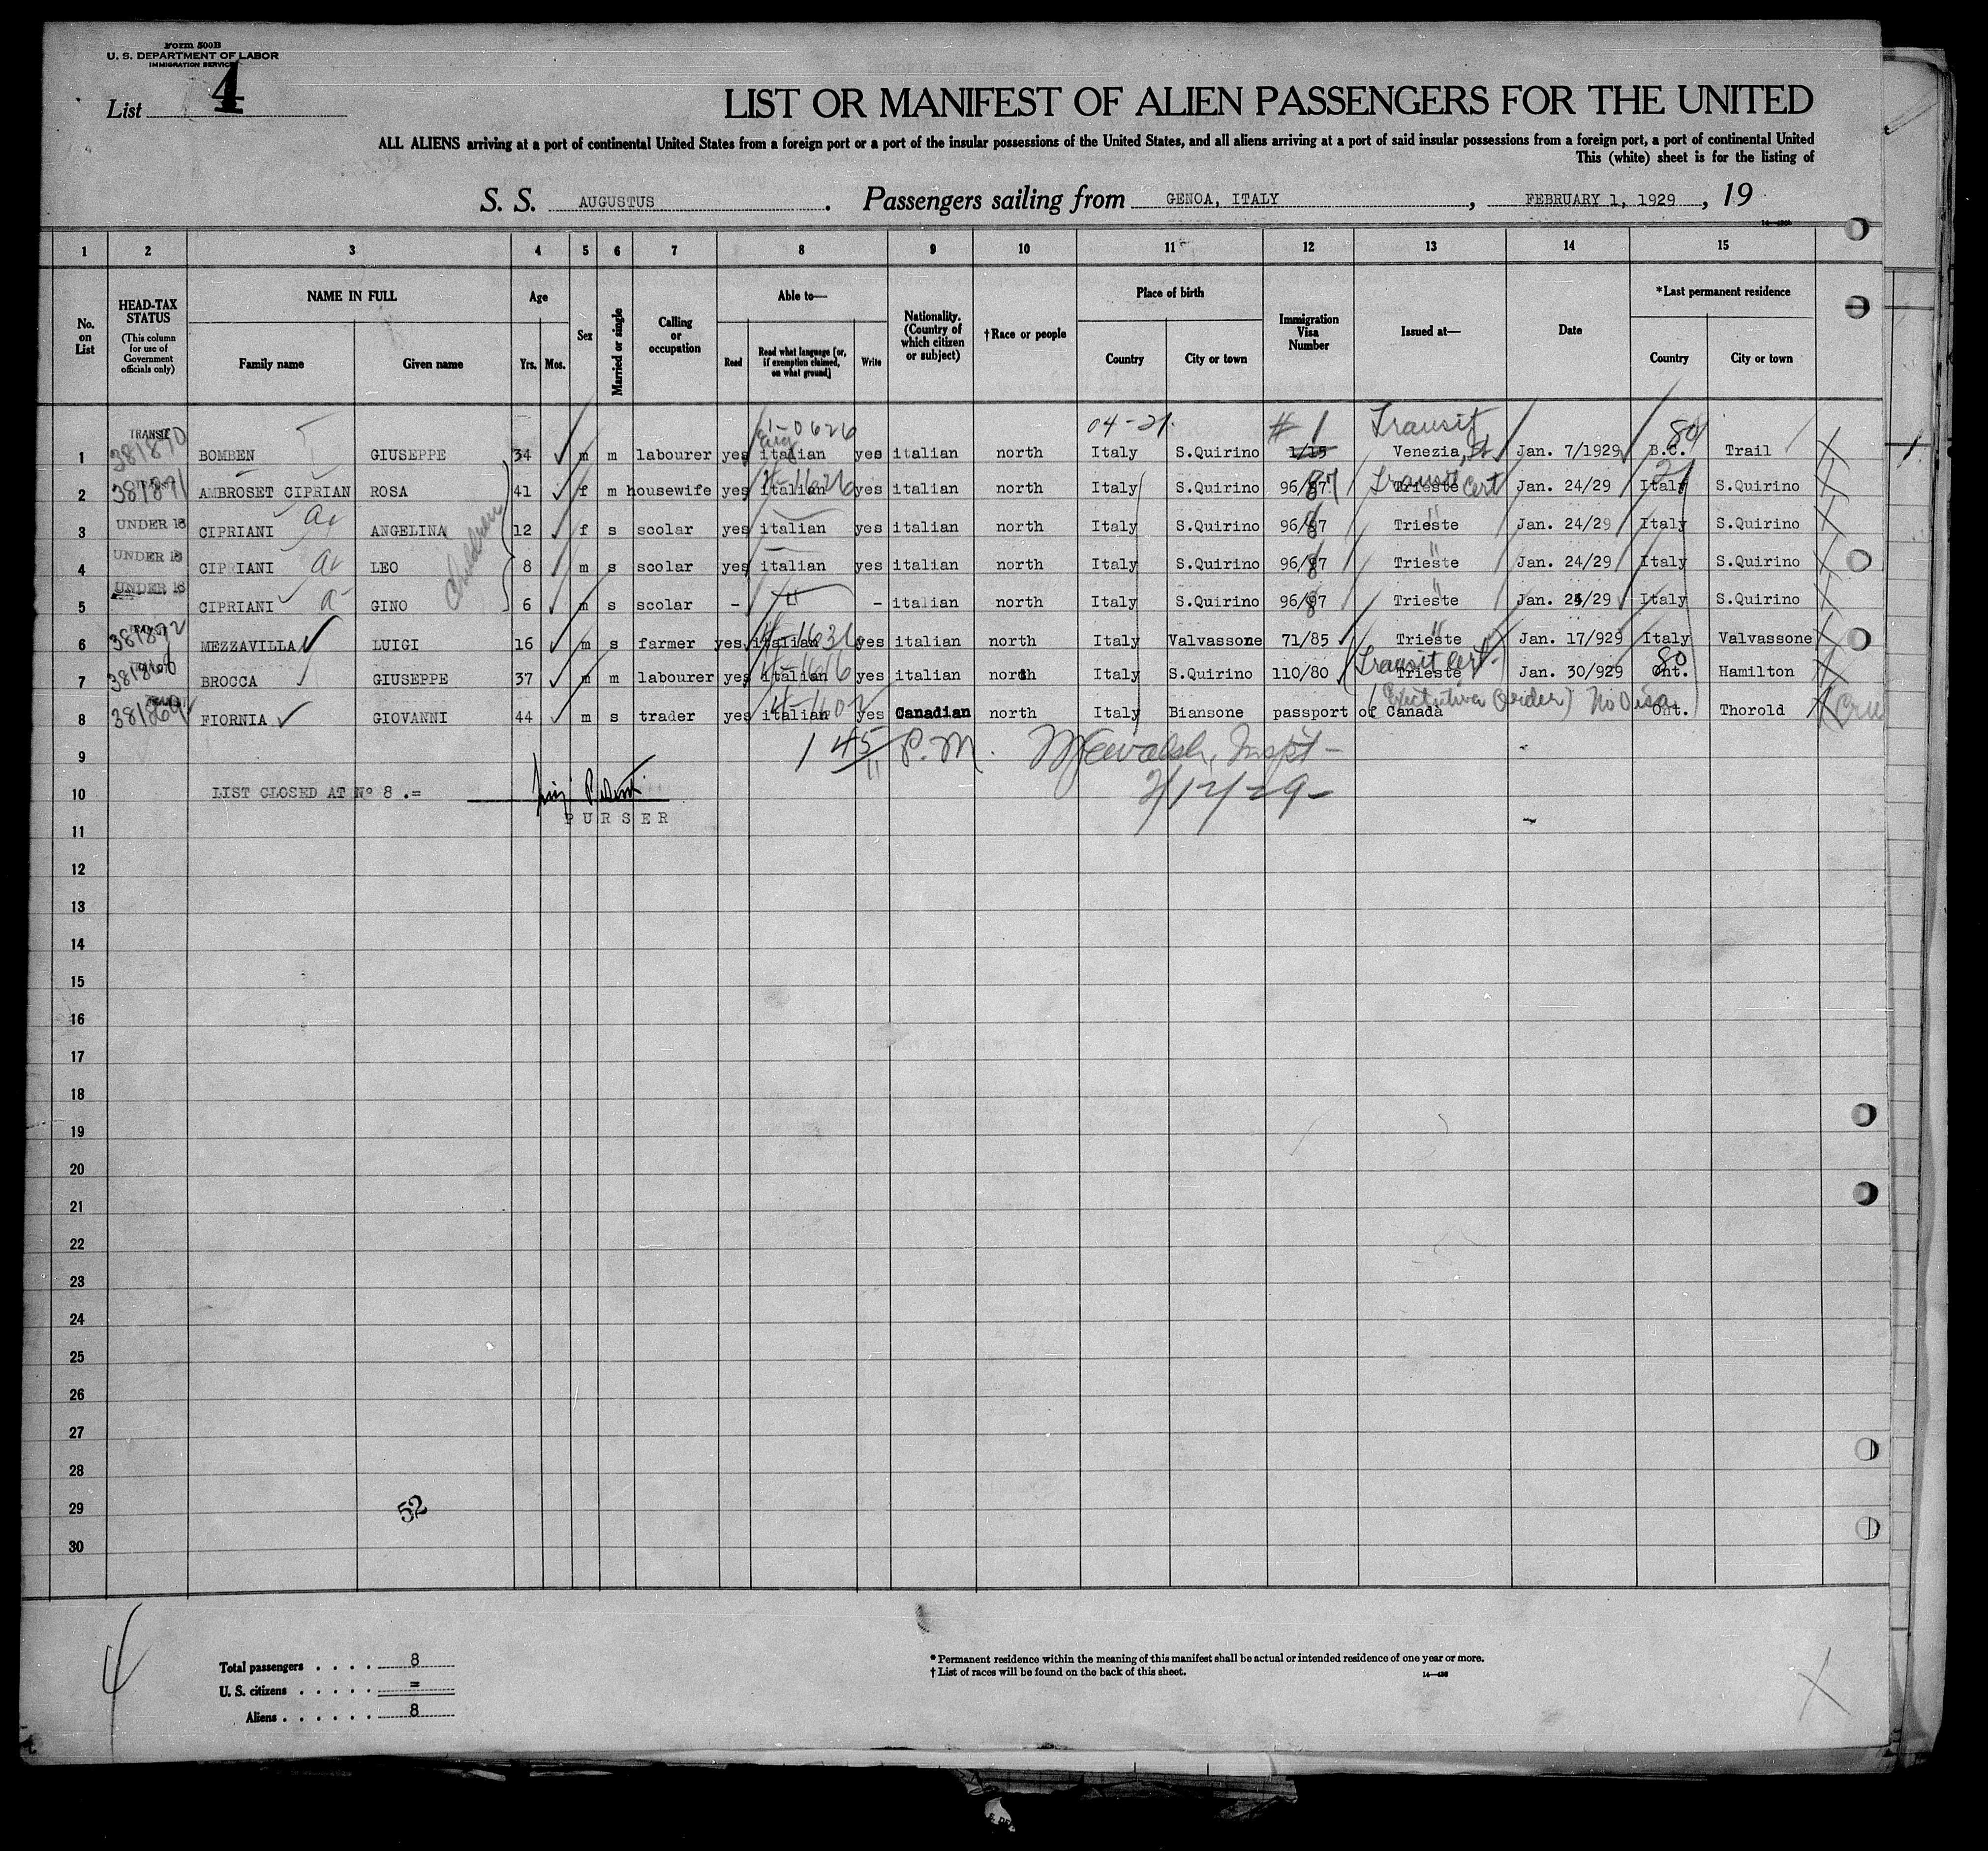 Form 500B
U. S. DEPARTMENT OF LABOR
IMMIGRATION SERVICE
List 4
LIST OR MANIFEST OF ALIEN PASSENGERS FOR THE UNITED
ALL ALIENS arriving at a port of continental United States from a foreign port or a port of the insular possessions of the United States, and all aliens arriving at a port of said insular possessions from a foreign port, a port of continental United
This (white) sheet is for the listing of
S. S. AUGUSTUS. Passengers sailing from GENOA, ITALY, FEBRUARY 1, 1929, 19
1 2 3 4 5 6 7 8 9 10 11 12 13 14 15
No. on List
HEAD-TAX STATUS
(This column for use of Government officials only)
NAME IN FULL
Family name Given name
Age
Yrs. Mos.
Sex
Married or single
Calling or occupation
Able to—
Read Read what language [or, if exemption claimed, on what ground] Write
Nationality. (Country of which citizen or subject)
†Race or people
Place of birth
Country City or town
Immigration Visa Number
Issued at—
Date
*Last permanent residence
Country City or town
1-0626 04-21 # 1 Transit 80
1 TRANSIT 381870 BOMBEN GIUSEPPE 34 m m labourer yes italian yes italian north Italy S.Quirino 1/15 Venezia, Jan. 7/1929 B.C. Trail
2 381871 AMBROSET CIPRIAN ROSA 41 f m housewife yes italian yes italian north Italy S.Quirino 96/87 Trieste Transit Cert Jan. 24/29 Italy S.Quirino
3 UNDER 16 CIPRIANI ANGELINA 12 f s scolar yes italian yes italian north Italy S.Quirino 96/87 Trieste " Jan. 24/29 Italy S.Quirino
children
4 UNDER 16 CIPRIANI LEO 8 m s scolar yes italian yes italian north Italy S.Quirino 96/87 Trieste " Jan. 24/29 Italy S.Quirino
5 UNDER 16 CIPRIANI GINO 6 m s scolar - " - italian north Italy S.Quirino 96/87 Trieste " Jan. 24/29 Italy S.Quirino
6 381872 MEZZAVILLA LUIGI 16 m s farmer yes italian yes italian north Italy Valvassone 71/85 Trieste " Jan. 17/929 Italy Valvassone
7 BROCCA GIUSEPPE 37 m m labourer yes italian yes italian north Italy S.Quirino 110/80 Trieste (Transit Cert.) Jan. 30/929 80 Ont. Hamilton
8 381869 FIORNIA GIOVANNI 44 m s trader yes italian yes Canadian north Italy Biansone passport of Canada (Executive Order) No Visa Ont. Thorold
9 1 45 P.M. Inspt-
10 LIST CLOSED AT Nº 8 .= 2/12/29-
PURSER
11
12
13
14
15
16
17
18
19
20
21
22
23
24
25
26
27
28
29
52
30
4
Total passengers . . . . 8
U. S. citizens . . . . . =
Aliens . . . . . . 8
* Permanent residence within the meaning of this manifest shall be actual or intended residence of one year or more.
† List of races will be found on the back of this sheet.